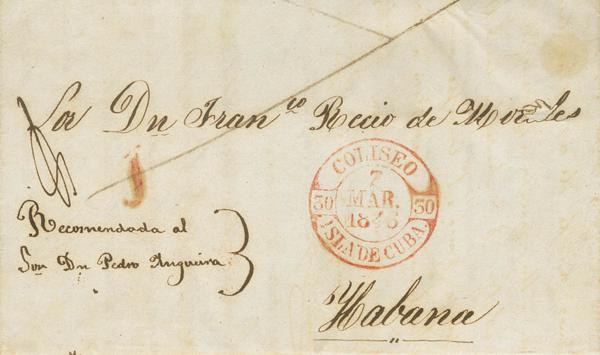 Sor Dn Franco Recio de Morales
1
COLISEO
7
MAR.
30 30
ISLA DE CUBA.
Recomendada al
Sor Dn Pedro Angueira
Habana